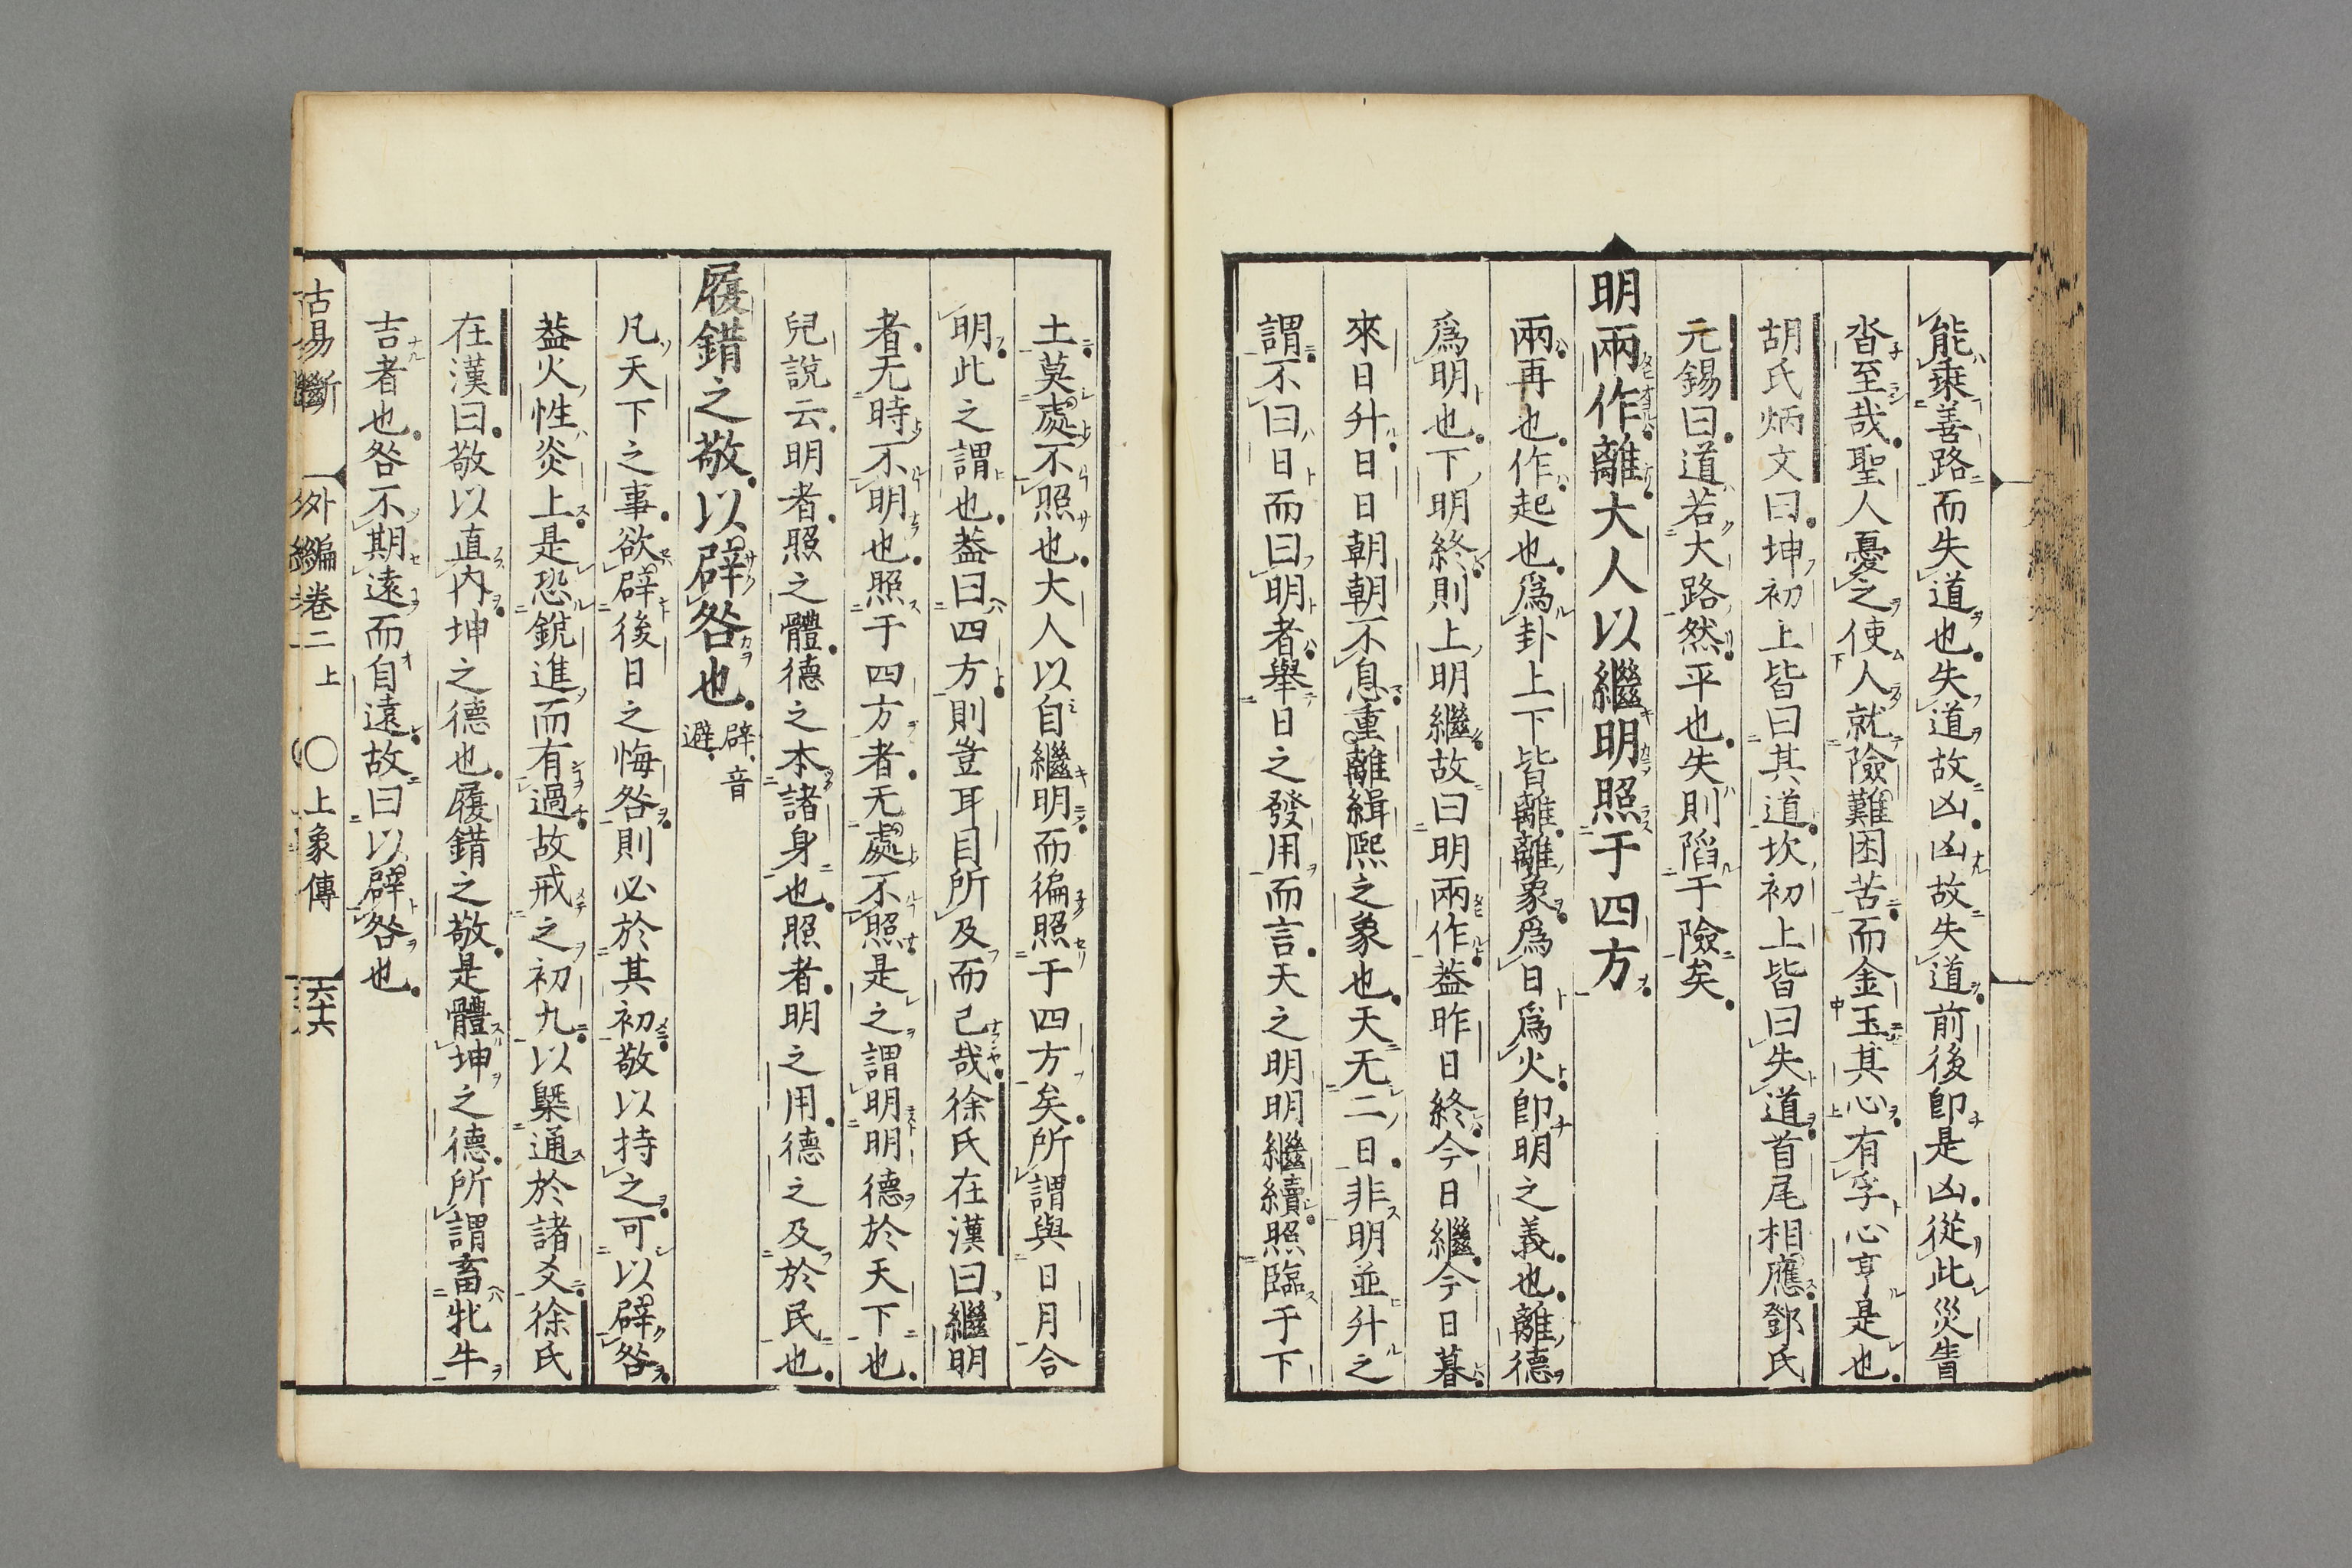 能乘善路而失道也失道故凶凶故失道前後即是凶從此災眚
沓至哉聖人憂之使人就險難困苦而金玉其心有孚心亨是也
胡氏炳文曰坤初上皆曰其道坎初上皆曰失道首尾相應鄧氏
元錫曰道若大路然平也失則陷于險矣
明兩作離大人以繼明照于四方
兩再也作起也爲卦上下皆離離象爲日爲火即明之義也離德
爲明也下明終則上明繼故曰明兩作葢昨日終今日繼今日暮
來日升日日朝朝不息重離緝熈之象也天无二日非明並升之
謂不曰日而曰明者舉日之發用而言天之明明繼續照臨于下
土莫處不照也大人以自繼明而徧照于四方矣所謂與日月合
明此之謂也葢曰四方則豈耳目所及而已哉徐氏在漢曰繼明
者无時不明也照于四方者无處不照是之謂明明德於天下也
兒說云明者照之體德之本諸身也照者明之用德之及於民也
履錯之敬以辟咎也 辟音避
凡天下之事欲辟後日之悔咎則必於其初敬以持之可以辟咎
葢火性炎上是恐銳進而有過故戒之初九以槩通於諸爻徐氏
在漢曰敬以直內坤之德也履錯之敬是體坤之德所謂畜牝牛
吉者也咎不期遠而自遠故曰以辟咎也
古易斷 外編卷二上 〇上象傳 六十六